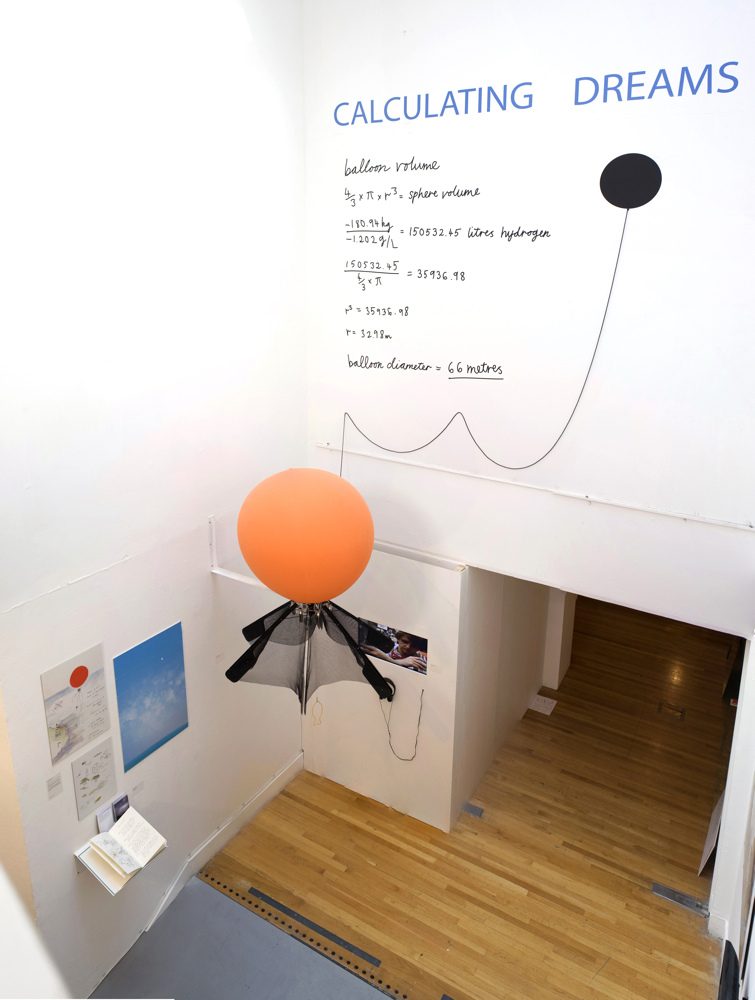 CALCULATING DREAMS
balloon volume
4/3 x π x r³ = sphere volume
-180.94kg / -1.202g/L = 150532.45 litres hydrogen
150532.45 / 4/3 x π = 35936.98
r³ = 35936.98
r = 32.98m
balloon diameter = 66 metres